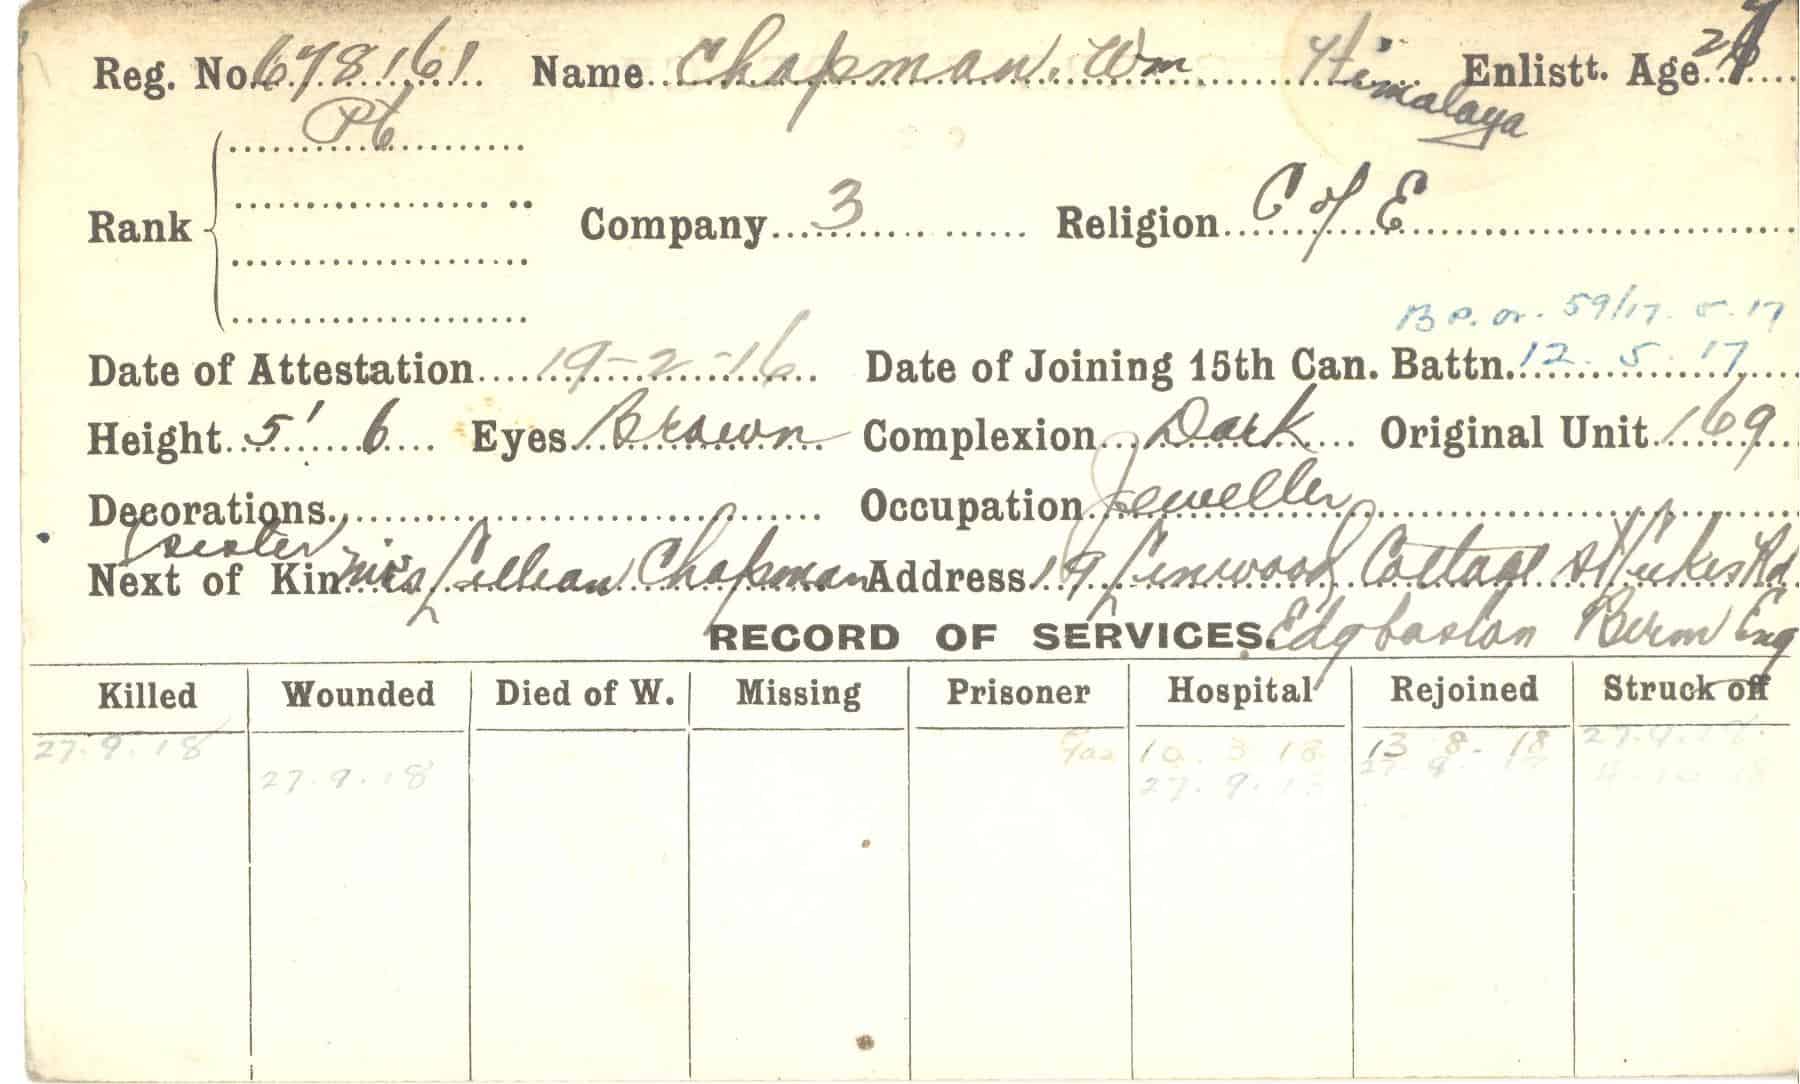 Reg. No. 678161 Name Chapman. Wm Himalaya Enlistt. Age
Pte
Rank Company 3 Religion C of E
B P. or. 59/17. 5. 17
Date of Attestation 19-2-16 Date of Joining 15th Can. Battn. 12. 5. 17
Height 5' 6 Eyes Brown Complexion Dark Original Unit 169
Decorations Occupation Jeweller
(sister
Next of Kin Miss Lillian Chapman Address 19 Linwood Cottage St Lukes Rd
RECORD OF SERVICES. Edgbaston Birm Eng
Killed Wounded Died of W. Missing Prisoner Hospital Rejoined Struck off
27.9.18 Gas 10. 3 18 13 8. 18 27.9.18.
27.9.18 27. 9. 18